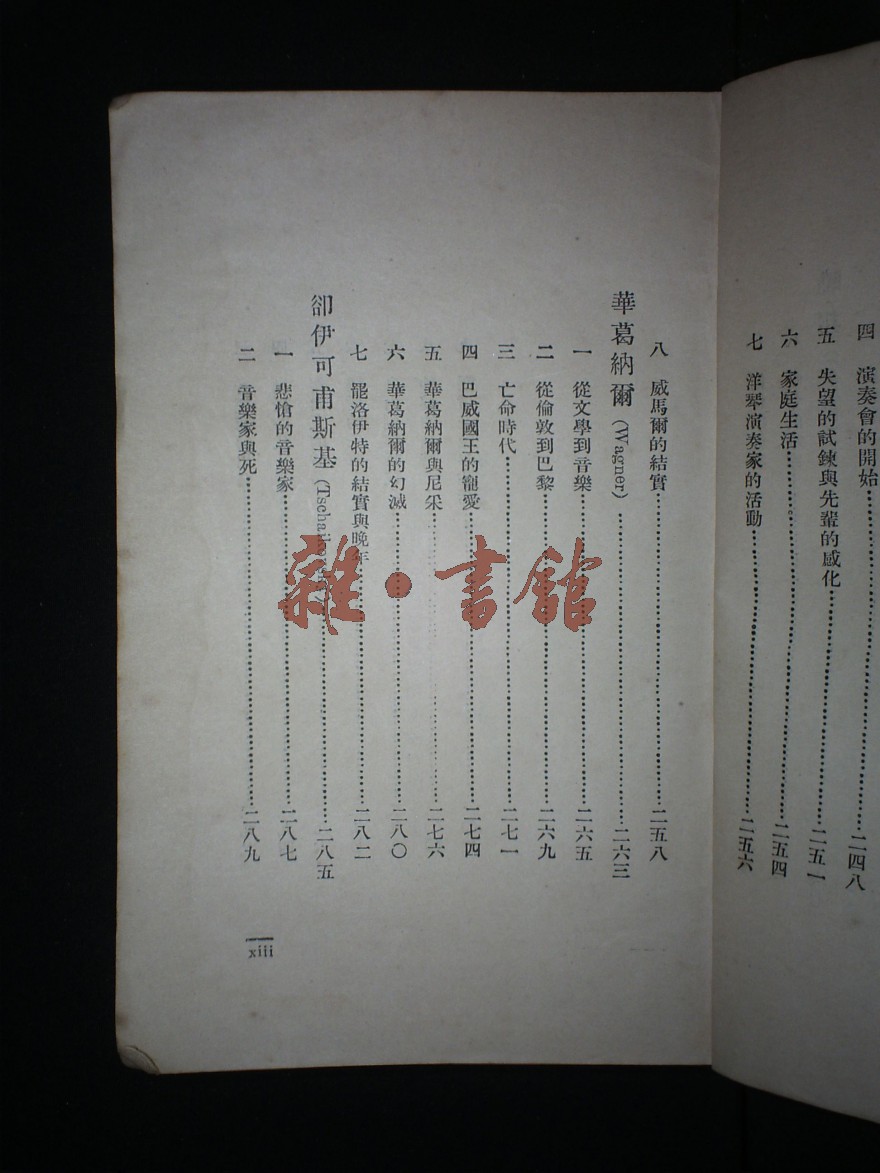 四 演奏會的開始……二四八
五 失望的試鍊與先輩的感化……二五一
六 家庭生活……二五四
七 洋琴演奏家的活動……二五六
八 威馬爾的結實……二五八
華葛納爾 (Wagner)……二六三
一 從文學到音樂……二六五
二 從倫敦到巴黎……二六九
三 亡命時代……二七一
四 巴威國王的寵愛……二七四
五 華葛納爾與尼采……二七六
六 華葛納爾的幻滅……二八〇
七 罷洛伊特的結實與晚年……二八二
卻伊可甫斯基……二八五
一 悲愴的音樂家……二八七
二 音樂家與死……二八九
xiii
雜·書館